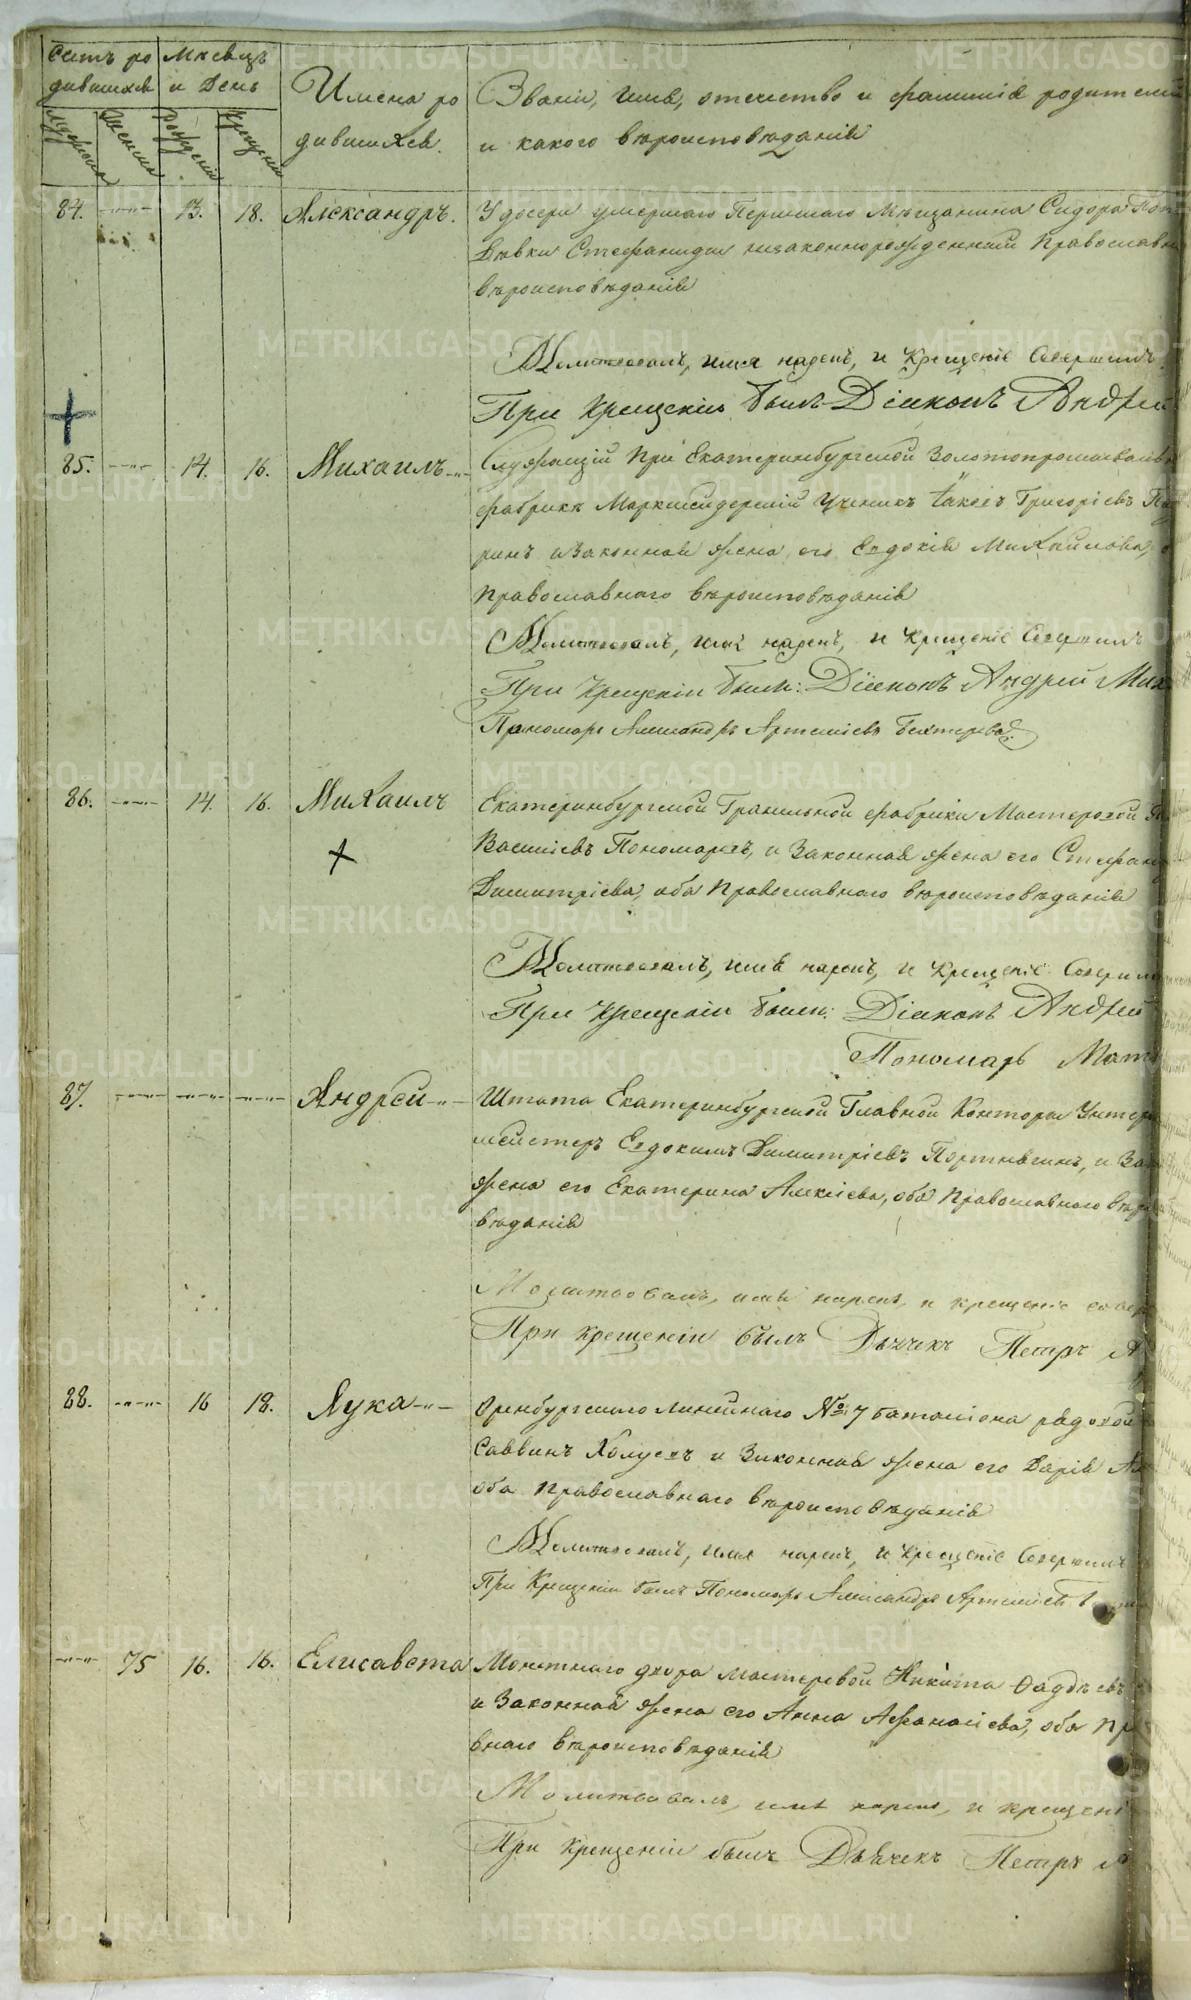 Счетъ ро Мѣсяцъ
дившихся и День
Имена ро
дившихся.
Званіе, имя, отчество и фамилія родителей
и какого вѣроисповѣданія
Мужеска Женска Рожденія Крещенія
84. 13. 18. Александръ. У дочери умершаго Мѣщанина Сидора
Дѣвки Стефаниды незаконнорожденный Православн
вѣроисповѣданія
Молитвовалъ, имя нарекъ, и Крещеніе Совершилъ
При Крещеніи былъ Діаконъ Андрей
85. 14. 16. Михаилъ Служащій при Екатеринбургской Золотопромываль
фабрикѣ Маркшейдерскій Ученикъ Іаковъ Григорьевъ
ринъ и Законная жена его Евдокія Михайлова,
Православнаго вѣроисповѣданія
Молитвовалъ, имя нарекъ, и Крещеніе Совершилъ
При Крещеніи были: Діаконъ Андрей Мих
Пономарь Александръ Артеміевъ Бехтеревъ
86. 14. 16. Михаилъ Екатеринбургской Гранильной фабрики Мастеровой
Василіевъ Пономаревъ, и Законная жена его Стефан
Димитріева, оба Православнаго вѣроисповѣданія
Молитвовалъ, имя нарекъ, и Крещеніе Соверши
При Крещеніи были: Діаконъ Андрей
Пономарь Матѳ
87. Андрей Штата Екатеринбургской Главной Конторы Унтеръ
мейстеръ Евдокимъ Димитріевъ Портнягинъ, и За
жена его Екатерина Алексіева, оба Православнаго вѣро
вѣданія
Молитвовалъ, имя нарекъ, и крещеніе совер
При крещеніи былъ Дьячекъ Петръ А
88. 16 18. Лука Оренбургскаго Линейнаго №: 7 баталіона рядовой
Саввинъ и Законная жена его Дарія
оба Православнаго вѣроисповѣданія
Молитвовалъ, имя нарекъ, и Крещеніе Совершилъ
При Крещеніи былъ Пономарь Александръ Артеміевъ
75 16. 16. Елисавета Монетнаго двора мастеровой Никита Ѳаддѣевъ
и Законная жена его Анна Афанасіева, оба Пр
внаго Вѣроисповѣданія
Молитвовалъ, имя нарекъ, и крещені
При Крещеніи былъ Дьячекъ Петръ А
METRIKI.GASO-URAL.RU